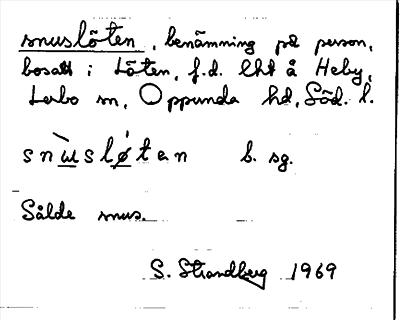 snuslöten, benämning på person,
bosatt i Löten, f.d. lht å Heby,
Lerbo sn, Oppunda hd, Söd. l.
snùsløt́en b. sg.
Sålde snus.
S. Strandberg 1969